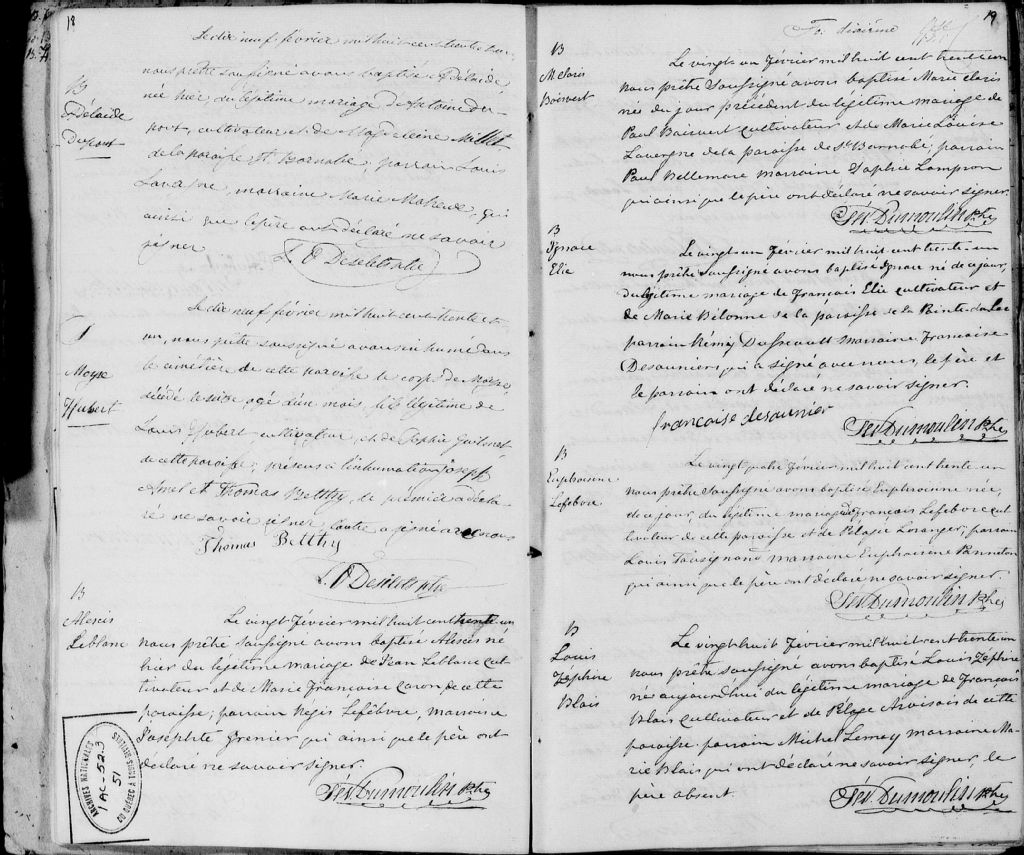 18
B
Adélaide
Dupont
Le dix neuf février mil huit cent trente un,
nous prêtre soussigné avons baptisé Adélaide
née hier du légitime mariage d'Antoine Du-
pont, cultivateur et de Magdeleine Millet
de la paroisse St. Barnabé; parrain Louis
Lavergne, marraine Marie Maheux, qui
ainsi que le père ont déclaré ne savoir
signer.
S
Moyse
Hubert
Le dix neuf février mil huit cent trente et
un, nous prêtre soussigné avons inhumé dans
le cimetière de cette paroisse le corps de Moÿse
décédé le seize agé d'un mois, fils légitime de
Louis Hubert cultivateur, et de Sophie
de cette paroisse; présens à l'inhumation Joseph
et Thomas Betthy, le premier a décla-
ré ne savoir signer, l'autre a signé avec nous
Thomas Betthy
B
Alexis
Leblanc
Le vingt Février mil huit cent trente un
nous prêtre soussigné avons baptisé Alexis né
hier du légitime mariage de Jean Leblanc cul
tivateur et de Marie Francoise Caron de cette
paroisse; parrain Régis Lefêbvre, marraine
Josephte Grenier qui ainsi que le père ont
déclaré ne savoir signer.
Sév Dumoulin Ptre
ARCHIVES NATIONALES
1 AC-52.3
51
DU QUÉBEC À
19
F. dixième
B
M Claris
Boisvert
Le vingt un Février mil huit cent trente un
nous prêtre soussigné avons baptisé Marie Claris
née du jour précédent du légitime mariage de
Paul Boisvert cultivateur et de Marie Louise
Lavergne de la paroisse de St Barnabé; parrain
Paul Bellemare marraine Sophie Lampron
qui ainsi que le père ont déclaré ne savoir signer.
Sév Dumoulin Ptre
B
Ignace
Elie
Le vingt un Février mil huit cent trente-un
nous prêtre soussigné avons baptisé Ignace né de ce jour,
du légitime mariage de François Elie cultivateur et
de Marie de la paroisse de la Pointe du Lac
parrain Rémy Dussault marraine Francoise
Desauniers qui a signé avec nous, le père et
le parrain ont déclaré ne savoir signer.
francoise desaunier
Sév Dumoulin Ptre
B
Euphrosine
Lefebvre
Le vingt quatre Février mil huit cent trente un
nous prêtre soussigné avons baptisé Euphrosinne née,
de ce jour, du légitime mariage de François Lefebvre cul
tivateur de cette paroisse et de Pelagie Loranger; parrain
Louis Tousignand marraine Euphrosinne
qui ainsi que le père ont déclaré ne savoir signer.
Sév Dumoulin Ptre
B
Louis
Zéphire
Blais
Le vingt huit Février mil huit cent trente un
nous prêtre soussigné avons baptisé Louis Zéphire
né aujourd'hui du légitime mariage de François
Blais cultivateur et de Pelagie de cette
paroisse parrain Michel Lemay marraine Ma-
rie Blais qui ont déclaré ne savoir signer, le
père absent.
Sév Dumoulin Ptre